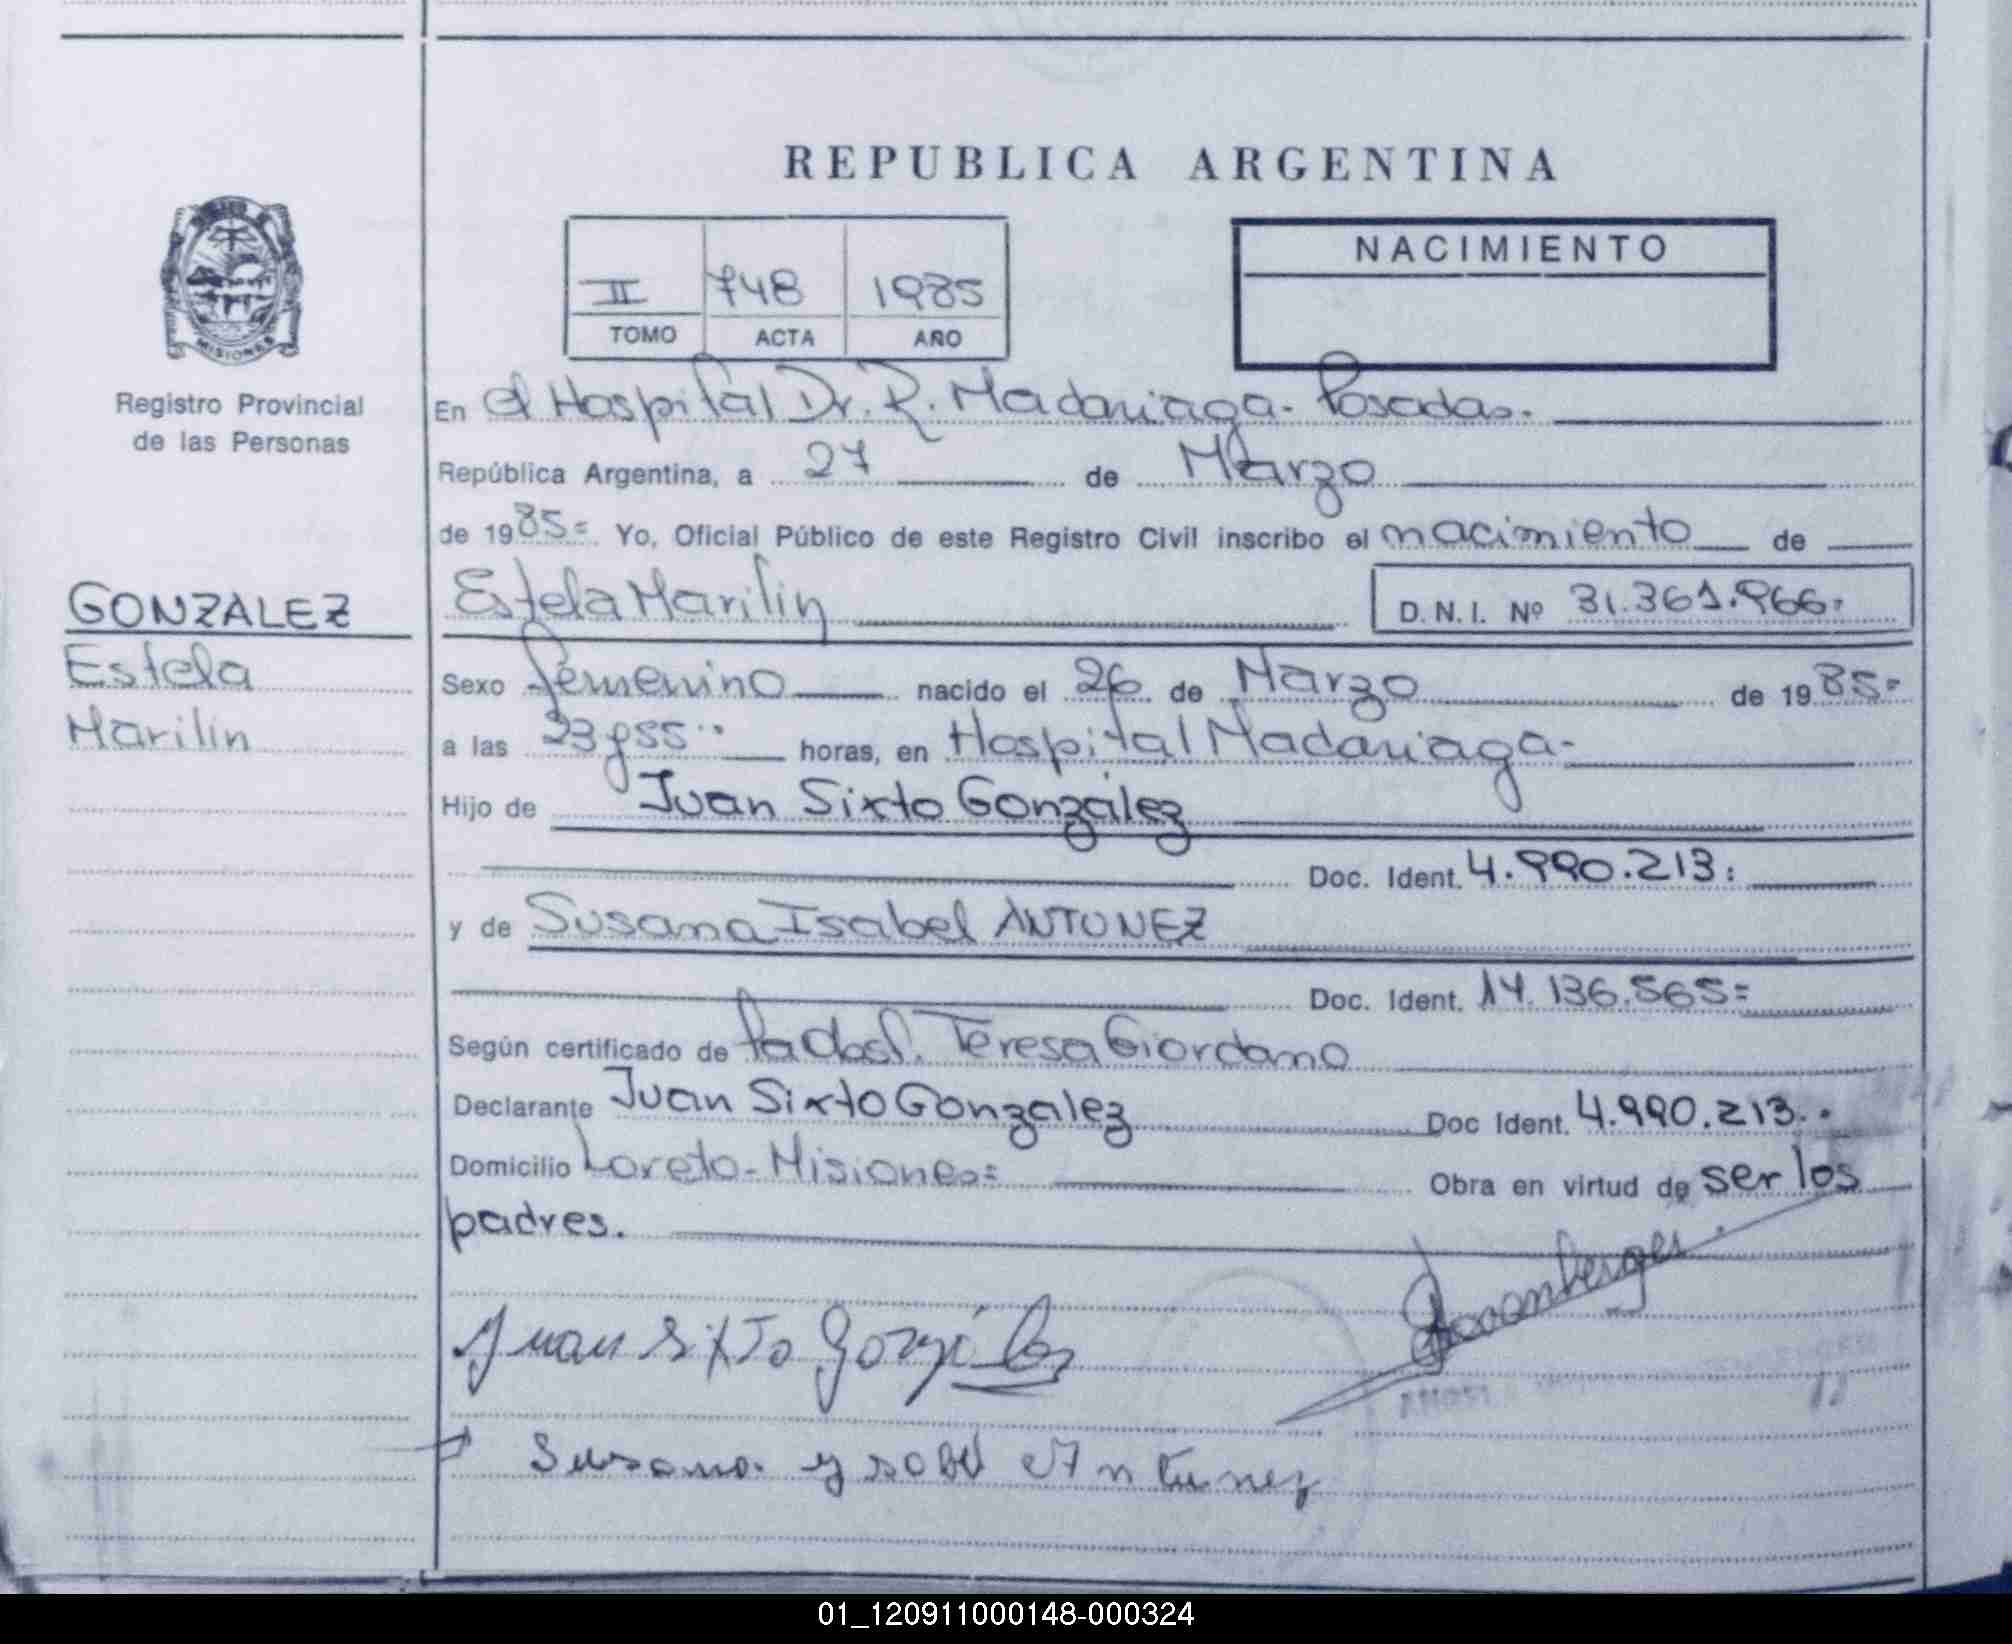 REPUBLICA ARGENTINA
II 748 1985
TOMO ACTA AÑO
NACIMIENTO
MISIONES
Registro Provincial
de las Personas
En el Hospital Dr. R. Madariaga - Posadas.
República Argentina, a 27 de Marzo
de 1985= Yo, Oficial Público de este Registro Civil inscribo el nacimiento de
GONZALEZ
Estela
Marilin
Estela Marilin D.N.I. Nº 31.361.966=
Sexo femenino nacido el 26 de Marzo de 1985=
a las 23 y 55 horas, en Hospital Madariaga-
Hijo de Juan Sixto González
Doc. Ident. 4.990.213:
y de Susana Isabel ANTUNEZ
Doc. Ident. 14.136.565=
Según certificado de la Obst. Teresa Giordano
Declarante Juan Sixto Gonzalez Doc Ident. 4.990.213..
Domicilio Loreto-Misiones= Obra en virtud de ser los
padres.
Juan Sixto González
Susana Ysabel Antunez
01_120911000148-000324